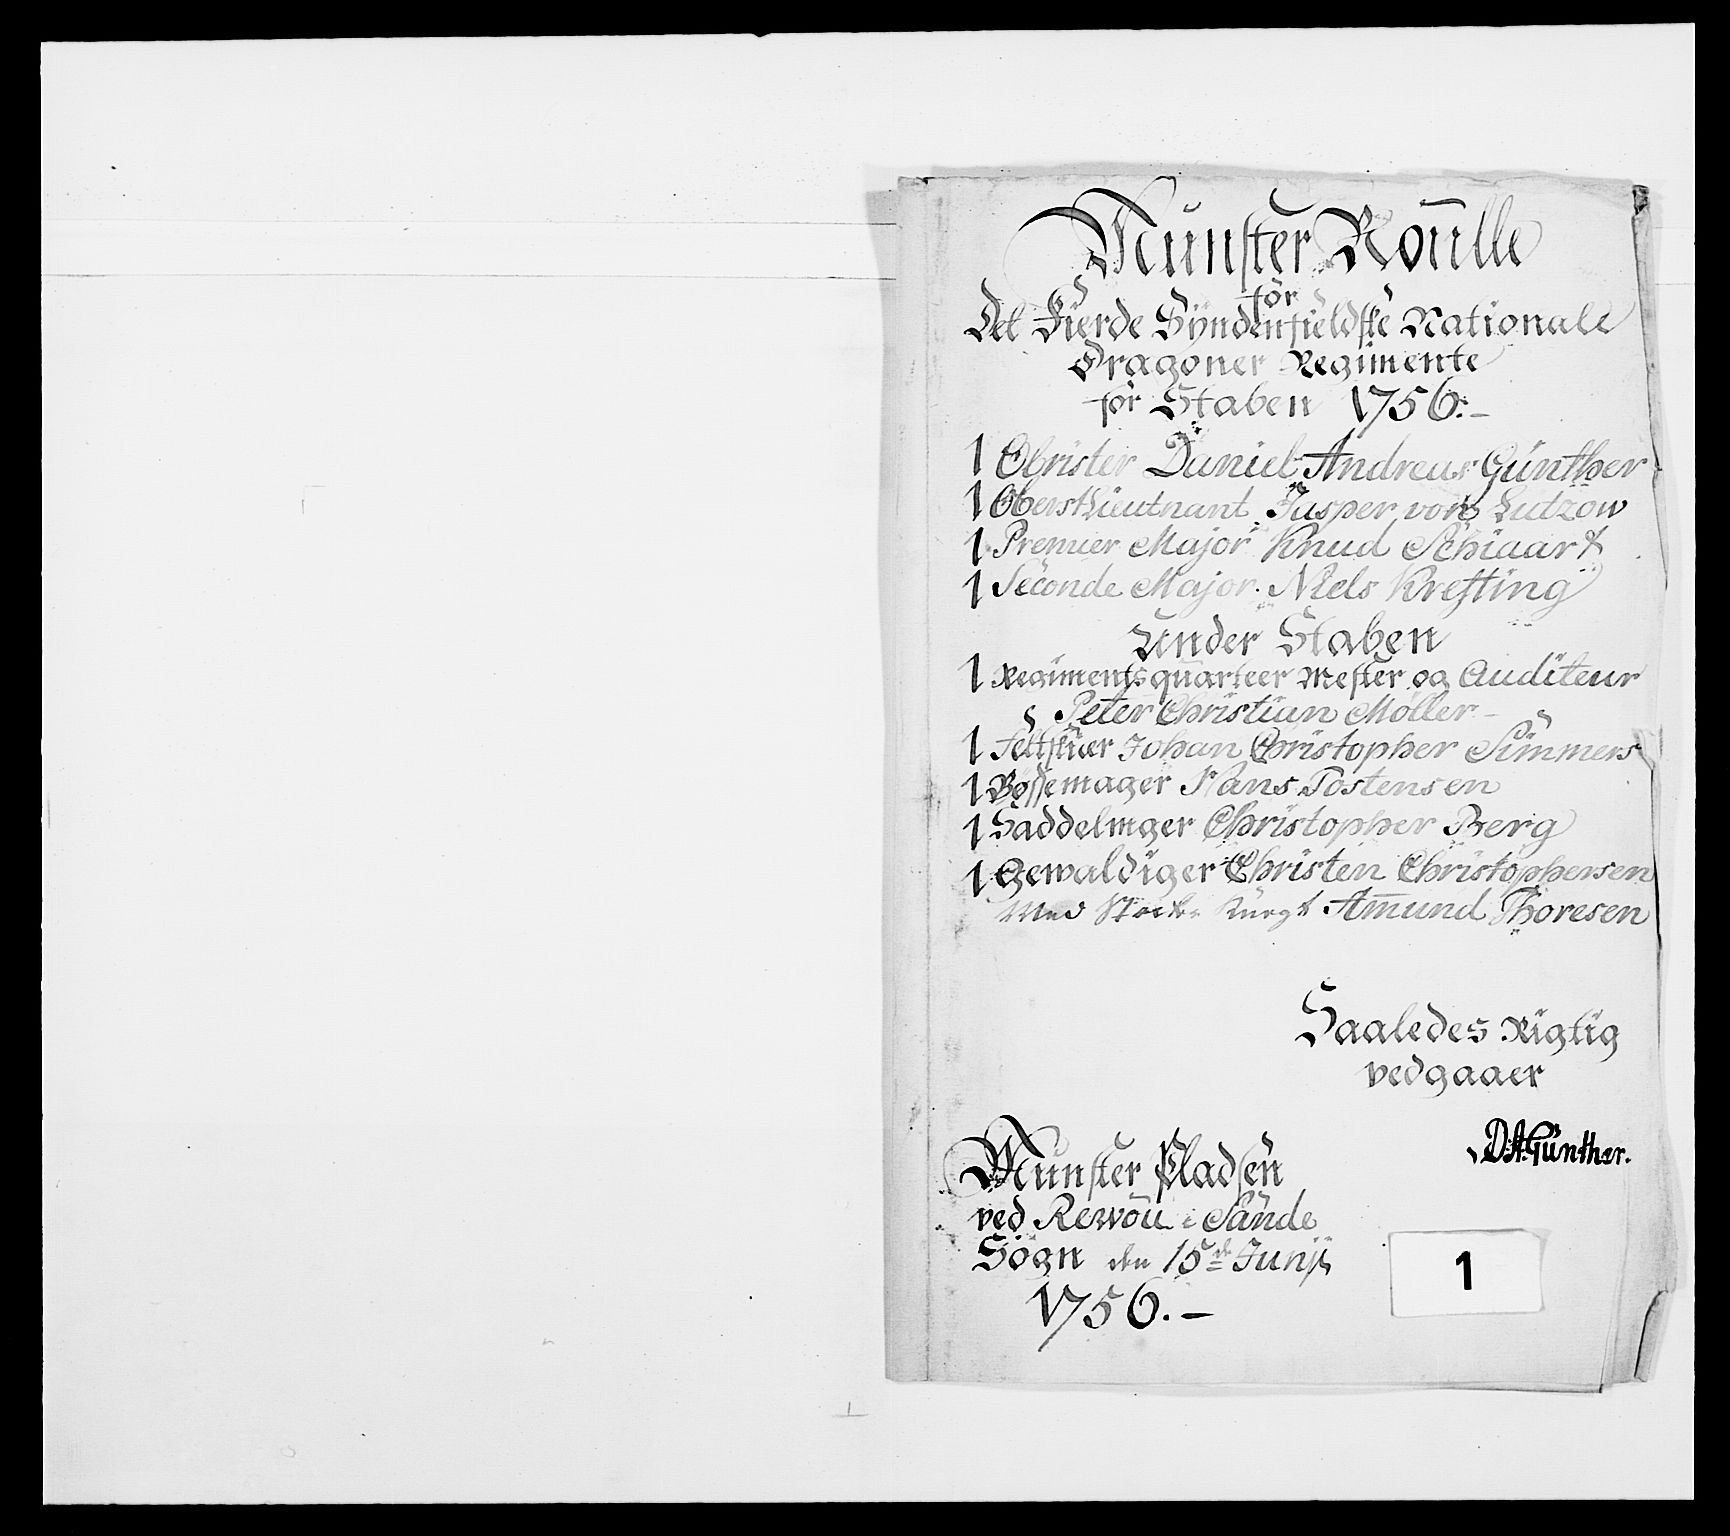 Munster Roulle
för
Det Fierde Syndenfieldske Nationale
Dragoner Regimente
för Staben 1756.-
1 Obrister Daniel Andreas Günther
1 OberstLieutnant Jasper von Lutzow
1 Premier Major Knud Schiaart
1 Seconde Major Niels Krefting
Under Staben
1 Regimentsquarteer Mester og Auditeur
Peter Christian Møller -
1 Feltskiær Johan Christopher Simmers
1 Bøssemager Hans Tostensen
1 Saddelmger Christopher Berg
1 Gewaldiger Christen Christophersen
Med Amund Thoresen
Saaledes Rigtig
vedgaaer
D. A. Günther.
Munster Pladsen
ved Rewou i Sande
Sogn den 15de Junij
1756.-
1